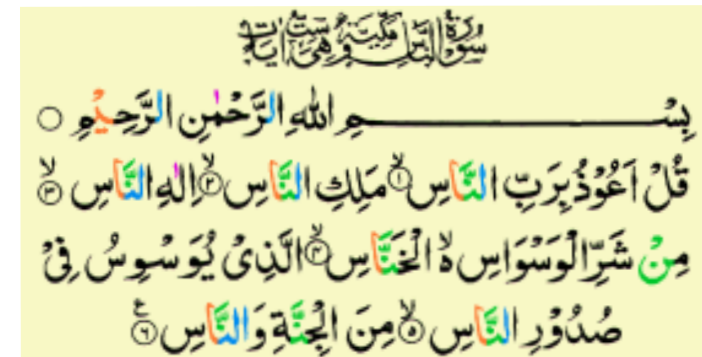 سُوْرَةُ النَّاسِ مَكِّيَّةٌ وَّهِىَ سِتُّ اٰيَاتٍ
بِسْـــــــــــــــــــمِ اللّٰهِ الرَّحْمٰنِ الرَّحِيْمِ ○
قُلْ اَعُوْذُ بِرَبِّ النَّاسِۙ‏﴿۱﴾ مَلِكِ النَّاسِۙ‏﴿۲﴾ اِلٰهِ النَّاسِۙ‏﴿۳﴾
مِنْ شَرِّ الْوَسْوَاسِ ۙ الْخَنَّاسِۙ‏﴿۴﴾ الَّذِىْ يُوَسْوِسُ فِىْ
صُدُوْرِ النَّاسِۙ‏﴿۵﴾ مِنَ الْجِنَّةِ وَالنَّاسِ‏﴿۶﴾ ع